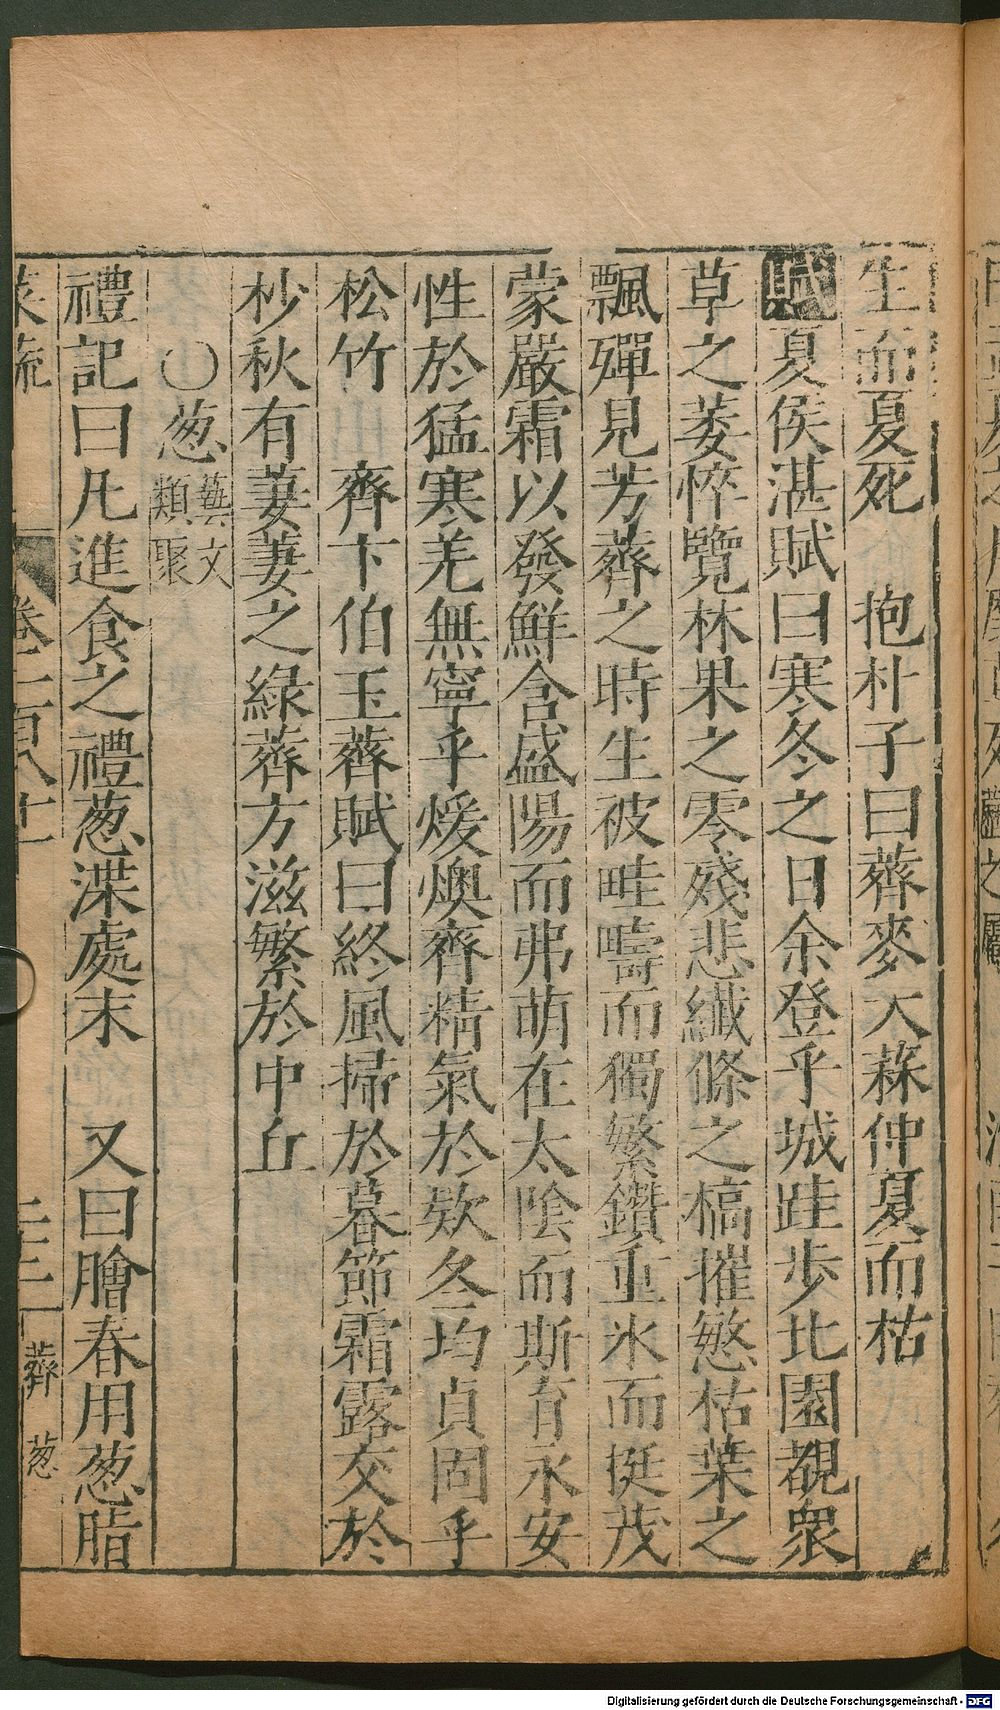 生而夏死　抱朴子曰薺麥大蒜仲夏而枯
賦夏侯湛賦曰寒冬之日余登乎城跬步北園覩眾
草之萎悴覽林果之零殘悲纖條之槁摧愍枯葉之
飄殫見芳薺之時生被畦疇而獨繁鑽重氷而挺茂
蒙嚴霜以發鮮含盛陽而弗萌在太陰而斯育永安
性於猛寒羌無寧乎煖燠齊精氣於欵冬均貞固乎
松竹　齊卞伯玉薺賦曰終風掃於暮節霜露交於
杪秋有萋萋之綠薺方滋繁於中丘
〇葱藝文類聚
禮記曰凡進食之禮葱渫處末　又曰膾春用葱脂
菜蔬　卷一百八十　二十二　薺　葱
Digitalisierung gefördert durch die Deutsche Forschungsgemeinschaft - DFG